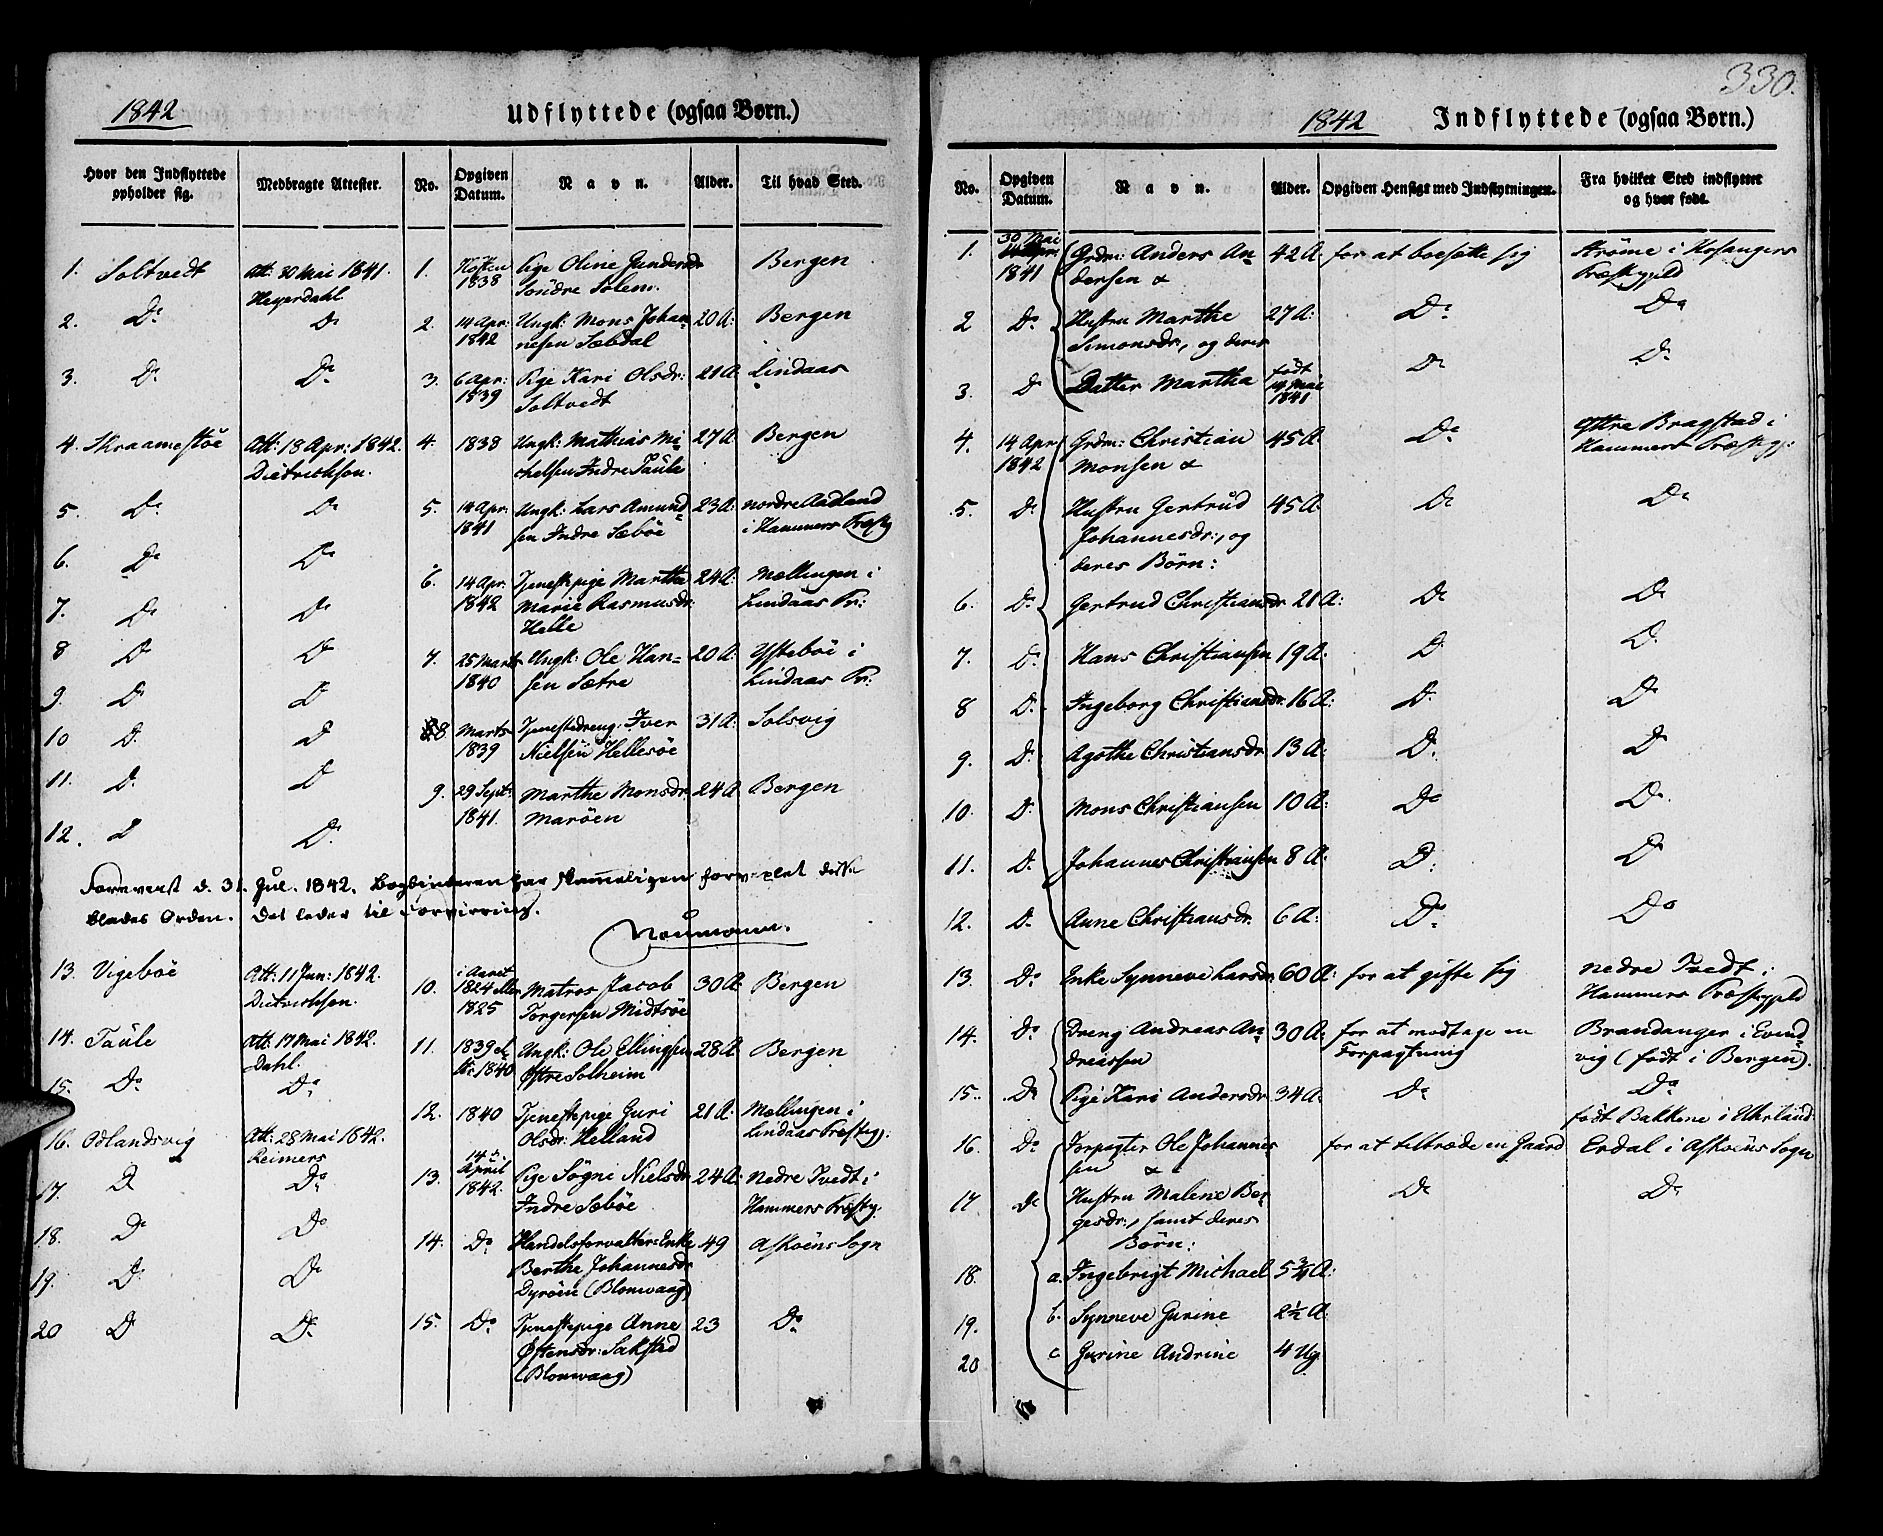 1842
Udflyttede (ogsaa Børn.)
Hvor den Indflyttede opholder sig.
Medbragte Attester.
No.
Opgiven Datum.
Navn.
Alder.
Til hvad Sted.
1. Soltvedt Att: 30 Mai 1841.
Heyerdahl
2. Do Do
3. Do Do
4. Skraamestøe Att: 18 Apr: 1842.
Dietrichsen.
5. Do Do
6. Do Do
7. Do Do
8 Do Do
9. Do Do
10 Do Do
11. Do Do
12. Do Do
1. Høsten 1838 Pige Oline Gundersdr Bergen
Søndre Solem.
2. 14 Apr: 1842 Ungk: Mons Johan= 20 A: Bergen
nesen Sæbdal
3. 6 Apr: 1839 Pige Kari Olsdr: 21 A: Lindaas
Soltvedt
4. 1838 Ungk: Mathias Mi= 27 A: Bergen
chelsen Indre Taule
5. 14 Apr: 1841 Ungk: Lars Amund= 23 A: nordre Aadland
sen Indre Sæbøe i Hammers Præstg
6. 14 Apr: 1842 Tjenestepige Martha 24 A: Mællingen i
Marie Rasmusdr: Lindaas Pr:
Helle
7. 25 Marts 1840 Ungk: Ole Han= 20 A: Ystebøe i
sen Sætre Lindaas Pr:
8. Marts 1839 Tjenestedreng Iver 31 A: Solsvig
Nielsen Hellesøe
9. 29 Sept: 1841. Marthe Monsdr. 24 A Bergen
Marøen
Foreverst d. 31. Jul. 1842. Bogbinderen har skammeligen forvexlet disse
blades Orden. Det leder til Forvirring.
Neumann.
13. Vigebøe Att: 11 Jun: 1842.
Dietrichsen.
14. Taule Att: 17 Mai 1842.
Dahl.
15. Do Do
16. Odlandsvig Att: 28 Mai 1842.
Reimers
17. Do Do
18. Do Do
19. Do Do
20 Do Do
10. i Aaret 1824 eller 1825 Matros Jacob 30 A: Bergen
Torgersen Midtsøe
11. 1839 el 1840 Ungk: Ole Ellingsen 28 A Bergen
Østre Solheim
12. 1840 Tjenestepige Guri 21 A: Mællingen i
Olsdr: Helland Lindaas Præstg:
13. 14de April 1842. Pige Søgni Nielsdr 24 A: Nedre Tvedt i
Indre Sæbøe Hammers Præstg.
14. Do Handelsforvalter=Enke 49 Askøens Sogn
Berthe Johannesdr
Dyrøen (Blomvaag)
15. Do Tjenestepige Anne 23 Do
Østensdr: Sakstad
(Blomvaag)
330.
1842
Indflyttede (ogsaa Børn.)
No.
Opgiven Datum.
Navn.
Alder.
Opgiven Hensigt med Indflytningen.
Fra hvilket Sted indflyttet og hvor født.
1. 30 Mai 1841 Grdm: Anders An= 42 A: for at bosætte sig Strøme i Hosangers
dersen & Præstgjeld
2 Do Hustru Marthe 27 A: Do Do
Simonsdr, og deres
3. Do Datter Martha født 14 Mai 1841 Do Do
4. 14 Apr 1842 Grdm: Christian 45 A: Do Østre Bragstad i
Monsen & Hammers Præstegj:
5. Do Hustru Gertrud 45 A: Do Do
Johannesdr:, og
deres Børn:
6. Do Gertrud Christiansdr 21 A: Do Do
7. Do Hans Christiansen 19 A: Do Do
8 Do Ingeborg Christiansdr. 16 A: Do Do
9. Do Agothe Christiansdr 13 A: Do Do
10. Do Mons Christiansen 10 A: Do Do
11. Do Johannes Christiansen 8 A: Do Do
12. Do Anne Christiansdr. 6 A: Do Do
13. Do Enke Synneve Larsdr 60 A: for at gifte sig nedre Tvedt i
Hammers Præstgjeld
14. Do Dreng Andreas An= 30 A: for at modtage en Brandanger i Evind=
dreassen Forpagtning vig (født i Bergen).
15. Do Pige Kari Andersdr. 34 A: Do Do
født Bakkene i Uhrland
16. Do Forpagter Ole Johannes for at tiltræde en Gaard Erdal i Askøens Sogn
sen &
17 Do Hustru Malene Bør= Do Do
gesdr., samt deres
Børn:
18. a. Ingebrigt Michael 5 3/4 A:
19. b. Synneve Gurine 2 1/2 A:
20 c Gurine Andrine 4 Ug.